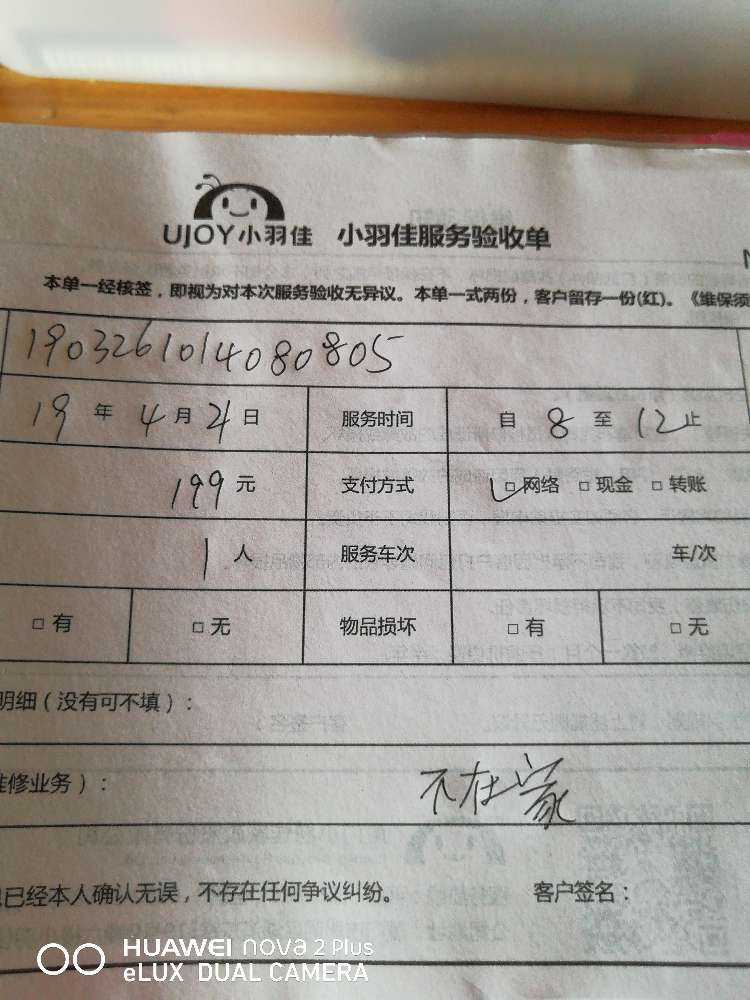 UJOY小羽佳 小羽佳服务验收单
本单一经核签，即视为对本次服务验收无异议。本单一式两份，客户留存一份(红)。《维保须
1903261014080805
19 年 4 月 21 日 服务时间 自 8 至 12 止
199 元 支付方式 □ 网络 □ 现金 □ 转账
1 人 服务车次 车/次
□ 有 □ 无 物品损坏 □ 有 □ 无
明细（没有可不填）：
修业务）： 不在家
已经本人确认无误，不存在任何争议纠纷。 客户签名：
HUAWEI nova 2 Plus
eLUX DUAL CAMERA